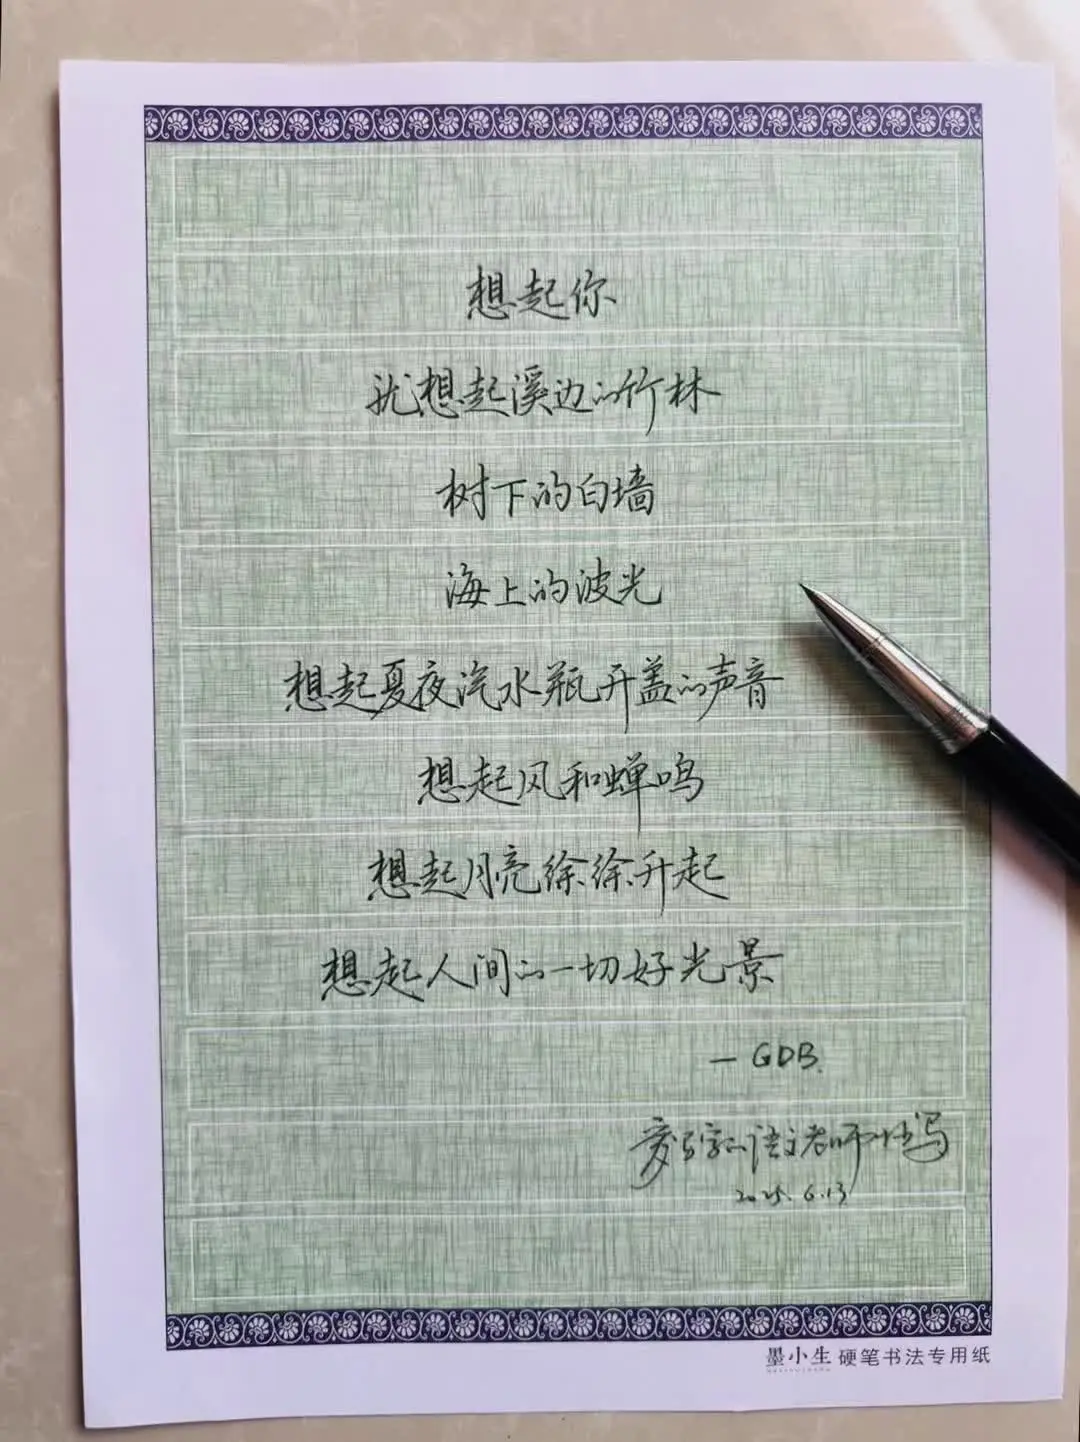 想起你
就想起溪边的竹林
树下的白墙
海上的波光
想起夏夜汽水瓶开盖的声音
想起风和蝉鸣
想起月亮徐徐升起
想起人间的一切好光景
—GDB.
爱写字的语文老师性写
2025.6.13
墨小生 硬笔书法专用纸